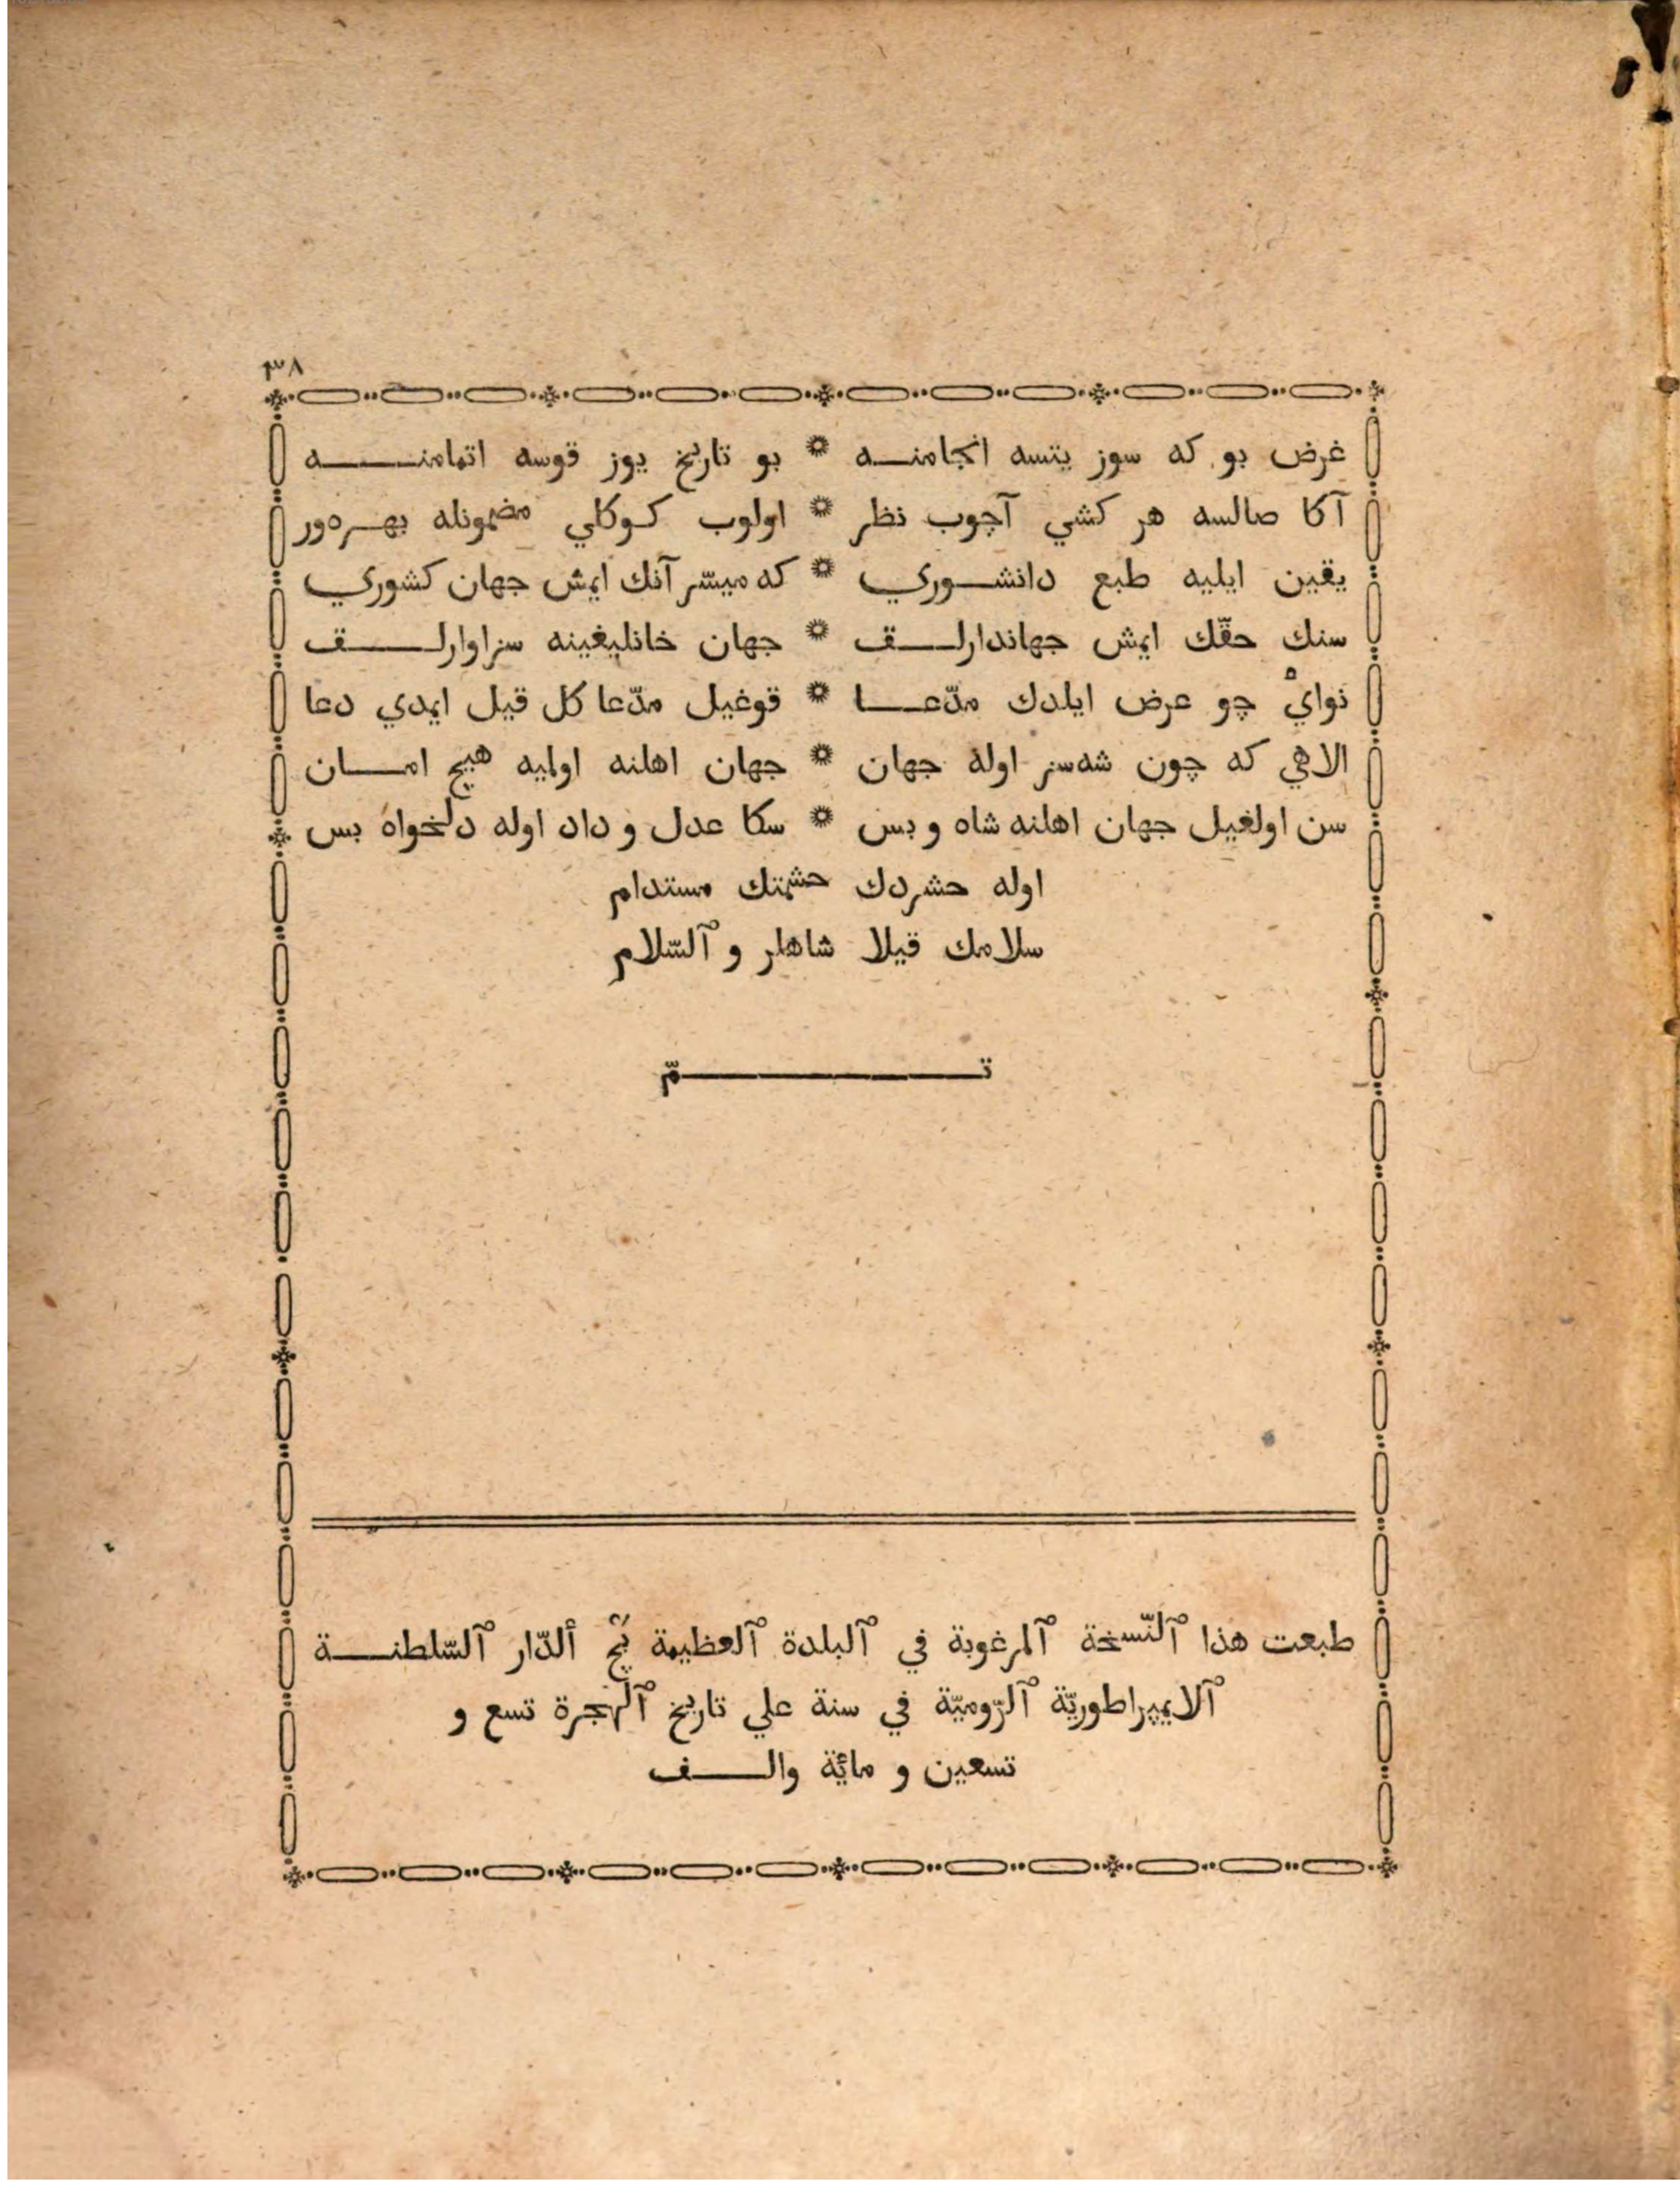 ٣٨
غرض بو كه سوز يتسه انجامنه * بو تاريخ يوز قوسه اتمامنه
آكا صالسه هر كشي آچوب نظر * اولوب كوكلي مضمونله بهرەور
يقين ايليه طبع دانشوري * كه ميسّر آنك ايمش جهان كشوري
سنك حقّك ايمش جهاندارلق * جهان خانليغينه سزاوارلق
نوايْ چو عرض ايلدك مدّعا * قوغيل مدّعا كل قيل ايمدي دعا
الاهي كه چون شه‌سز اوله جهان * جهان اهلنه اولميه هيچ امان
سن اولغيل جهان اهلنه شاه و بس * سكا عدل و داد اوله دلخواه بس
اوله حشردك حشمتك مستدام
سلامك قيلا شاهلر و ٱلسّلام
تمّ
طبعت هذا ٱلنّسخة ٱلمرغوبة في ٱلبلدة ٱلعظيمة بچ ألدّار ٱلسّلطنة
ٱلايمپراطوريّة ٱلرّوميّة في سنة علي تاريخ ٱلهجرة تسع و
تسعين و مائة والف